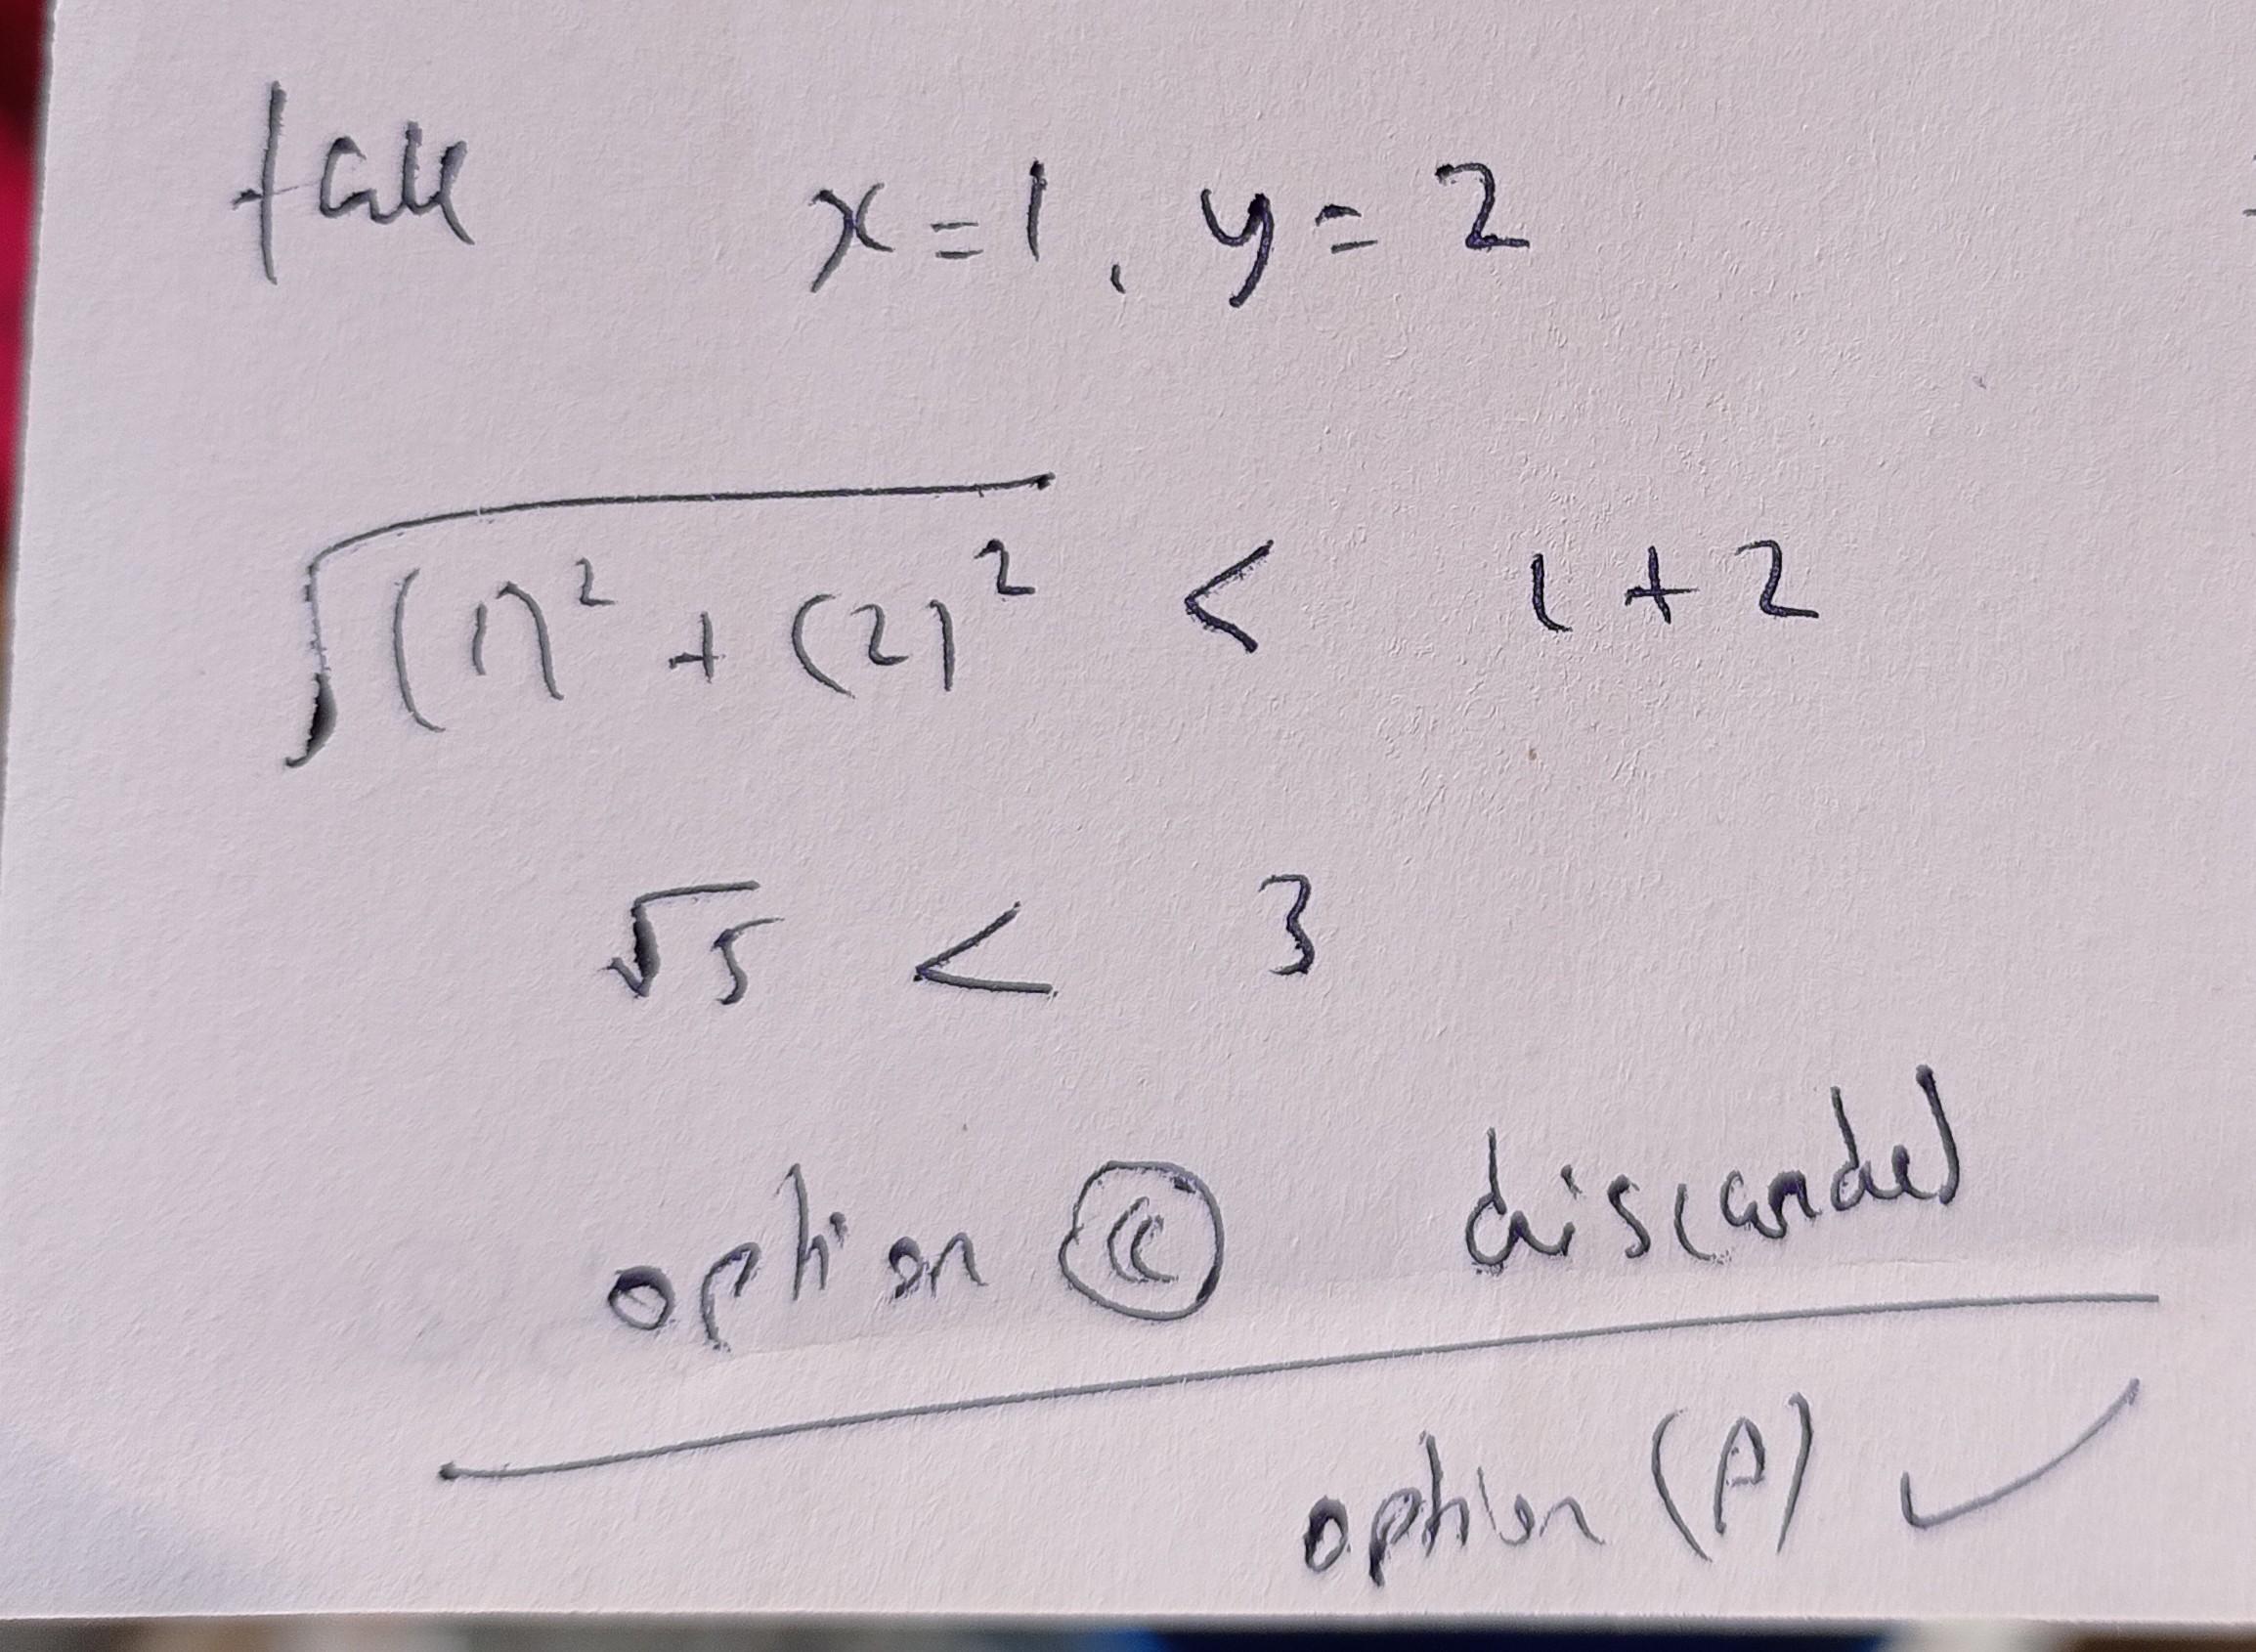 take x=1, y=2
√(1)² + (2)² < 1+2
√5 < 3
option (c) discarded
option (A) ✓